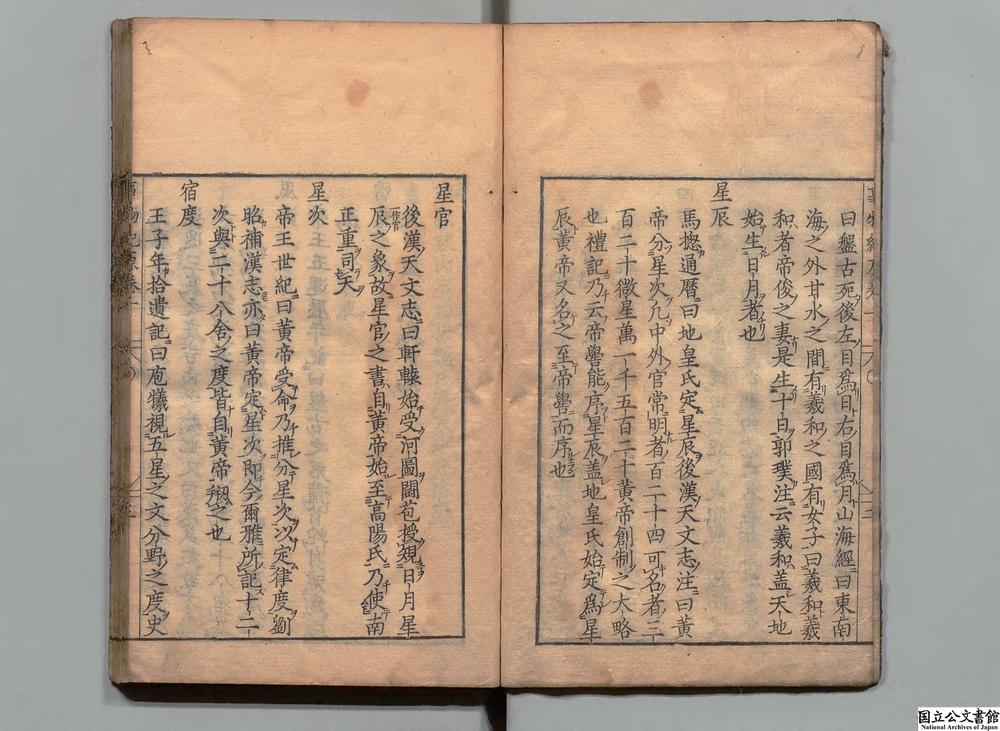 曰盤古死後左目爲日右目爲月山海經曰東南
海之外甘水之間有羲和之國有女子曰羲和羲
和者帝俊之妻是生十日郭璞注云羲和盖天地
始生日月者也
星辰
馬摠通曆曰地皇氏定星辰後漢天文志注曰黄
帝分星次凢中外官常明者百二十四可名者三
百二十微星萬一千五百二十黄帝創制之大略
也禮記乃云帝嚳能序星辰盖地皇氏始定爲星
辰黄帝又名之至帝嚳而序也
星官
後漢天文志曰軒轅始受河圖鬪苞授規日月星
辰之象故星官之書自黄帝始至高陽氏乃使南
正重司天
星次
帝王世紀曰黄帝受命乃推分星次以定律度劉
昭補漢志亦曰黄帝定星次即今爾雅所記十二
次與二十八舍之度皆自黄帝剏之也
宿度
王子年拾遺記曰庖犠視五星之文分野之度史
国立公文書館
National Archives of Japan